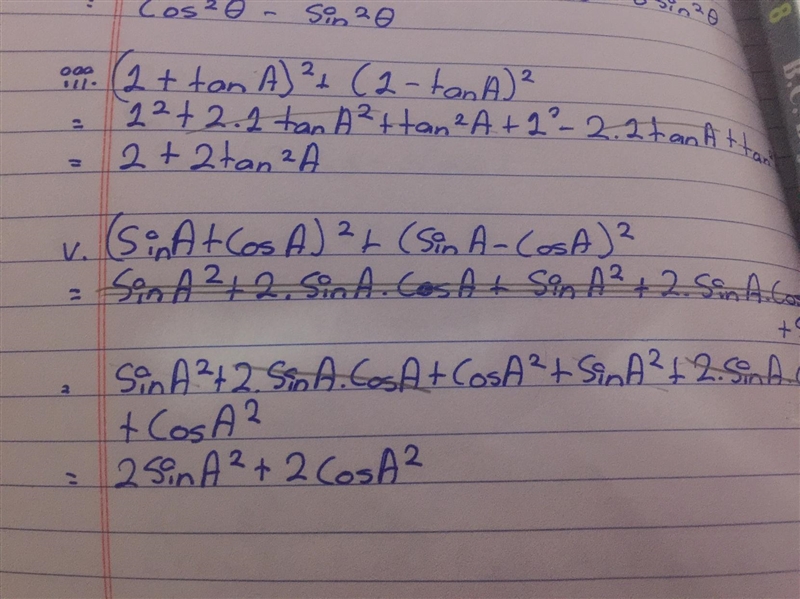 Cos²θ - Sin²θ
Sin²θ
iii. (1 + tan A)² + (1 - tanA)²
= 1² + 2.1 tanA² + tan²A + 1² - 2.1tanA + tan²
= 2 + 2tan²A
v. (SinA + CosA)² + (SinA - CosA)²
= SinA² + 2.SinA.CosA + SinA² + 2.SinA.Cos
= SinA² + 2.SinA.CosA + CosA² + SinA² + 2.SinA.
+ CosA²
= 2SinA² + 2CosA²